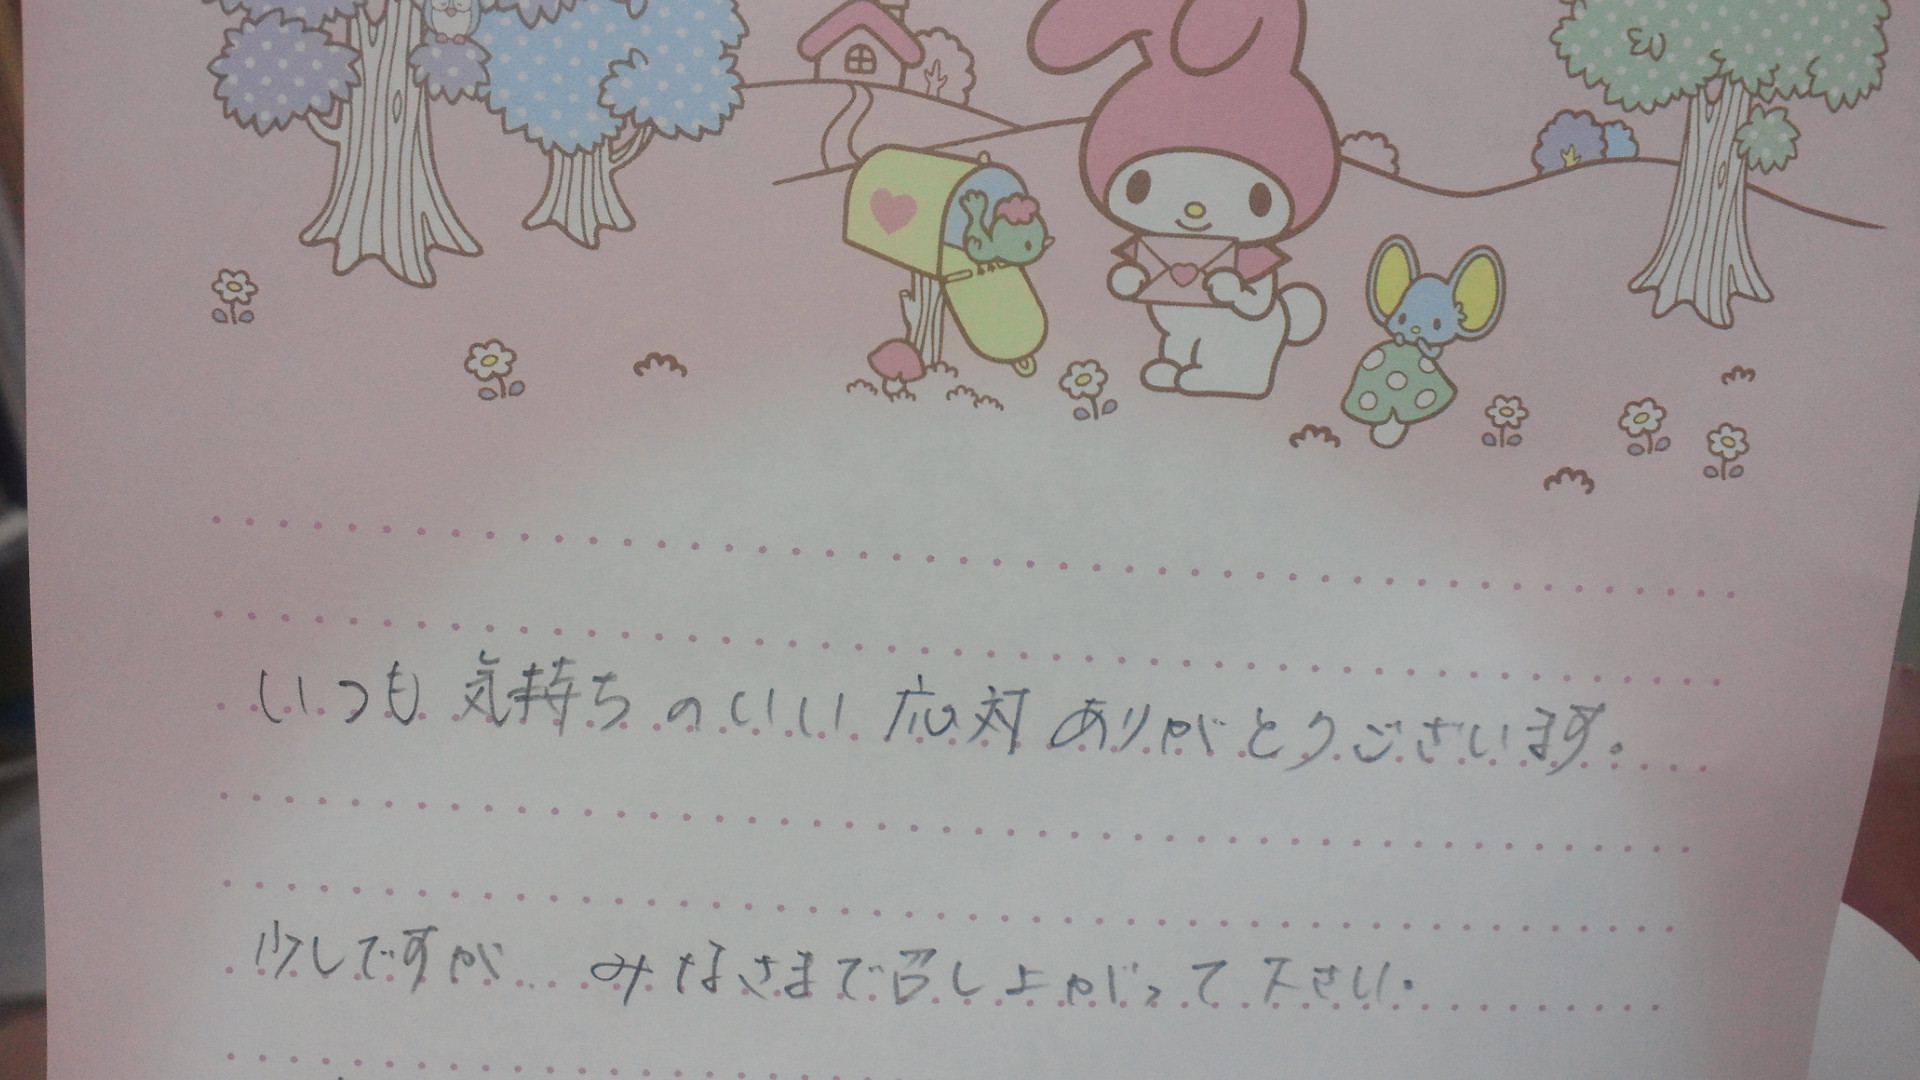 いつも気持ちのいい応対ありがとうございます。
少しですが...みなさまで召し上がって下さい。